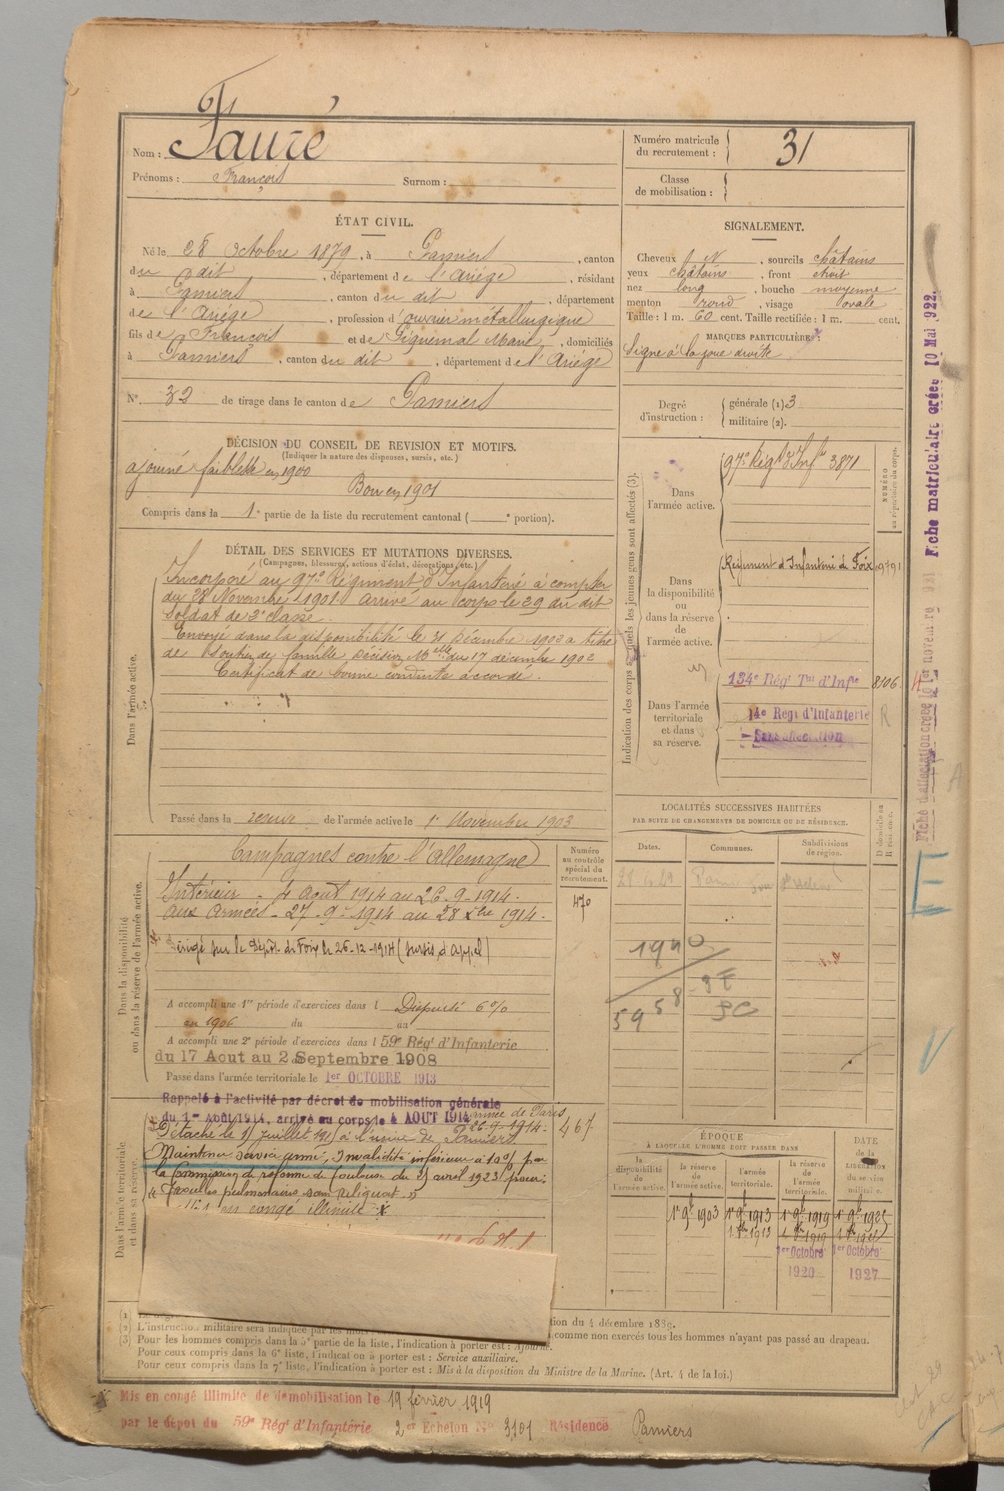 Nom : Fauré
Prénoms : François Surnom :
Numéro matricule du recrutement : 31
Classe de mobilisation :
ÉTAT CIVIL.
Né le 28 Octobre 1879, à Pamiers, canton
du dit, département de l'Ariége, résidant
à Pamiers, canton du dit, département
de l'Ariége, profession d'ouvrier métallurgique
fils de François et de Piquemal Marie, domiciliés
à Pamiers, canton du dit, département de l'Ariége
N° 32 de tirage dans le canton de Pamiers
SIGNALEMENT.
Cheveux N, sourcils châtains
yeux châtains, front étroit
nez long, bouche moyenne
menton rond, visage ovale
Taille : 1 m. 60 cent. Taille rectifiée : 1 m. cent.
MARQUES PARTICULIÈRES :
Signe à la joue droite
Degré d'instruction : générale (1) 3
militaire (2).
DÉCISION DU CONSEIL DE REVISION ET MOTIFS.
(Indiquer la nature des dispenses, sursis, etc.)
ajourné faiblesse en 1900
Bon en 1901
Compris dans la 1e partie de la liste du recrutement cantonal ( e portion).
DÉTAIL DES SERVICES ET MUTATIONS DIVERSES.
(Campagnes, blessures, actions d'éclat, décorations, etc.)
Dans l'armée active.
Incorporé au 97e Régiment d'Infanterie à compter
du 28 Novembre 1901. Arrivé au corps le 29 du dit
Soldat de 2e classe
Envoyé dans la disponibilité le 31 décembre 1902 à titre
de soutien de famille Décision Melle du 17 décembre 1902
Certificat de bonne conduite accordé.
Passé dans la réserve de l'armée active le 1er Novembre 1903
Indication des corps auxquels les jeunes gens sont affectés (3).
NUMÉRO au répertoire du corps.
Dans l'armée active.
97e Régt d'Infie 3871
Dans la disponibilité ou dans la réserve de l'armée active.
Régiment d'Infanterie de Foix
Dans l'armée territoriale et dans sa réserve.
134e Régt Tal d'Infie 8106
14e Régt d'Infanterie
Sans affectation
Fiche matriculaire créée 10 Mai 1922.
LOCALITÉS SUCCESSIVES HABITÉES
PAR SUITE DE CHANGEMENTS DE DOMICILE OU DE RÉSIDENCE.
Dates. Communes. Subdivisions de région. D domicile ou R résidence.
Dans la disponibilité ou dans la réserve de l'armée active.
Numéro au contrôle spécial du recrutement.
470
Campagnes contre l'Allemagne
Intérieur - 4 Août 1914 au 26-9-1914.
aux Armées - 27-9-1914 au 28 Xbre 1914.
dirigé sur le Dépôt de Foix le 26-12-1914 (sursis d'appel)
A accompli une 1re période d'exercices dans l Dispensé 6%
en 1906 du au
A accompli une 2e période d'exercices dans l 59e Régt d'Infanterie
du 17 Aout au 2 Septembre 1908
Passé dans l'armée territoriale le 1er OCTOBRE 1913
Dans l'armée territoriale et dans sa réserve.
Rappelé à l'activité par décret de mobilisation générale
du 1er Août 1914, arrivé au corps le 4 AOUT 1914
26-9-1914 - 467
Détaché le 15 juillet à l'usine de Pamiers
Maintenu service armé, Invalidité inférieure à 10% par
la Commission de réforme de Toulouse du 25 avril 1923 pour:
en congé illimité
1940
ÉPOQUE
À LAQUELLE L'HOMME DOIT PASSER DANS
la disponibilité de l'armée active. la réserve de l'armée active. l'armée territoriale. la réserve de l'armée territoriale. DATE de la LIBÉRATION du service militaire.
1er 9bre 1903 1er 9bre 1913 1er 9bre 1919 1er 9bre 1925
1er Octobre 1920 1er Octobre 1927
tion du 4 décembre 1889.
(2) L'instruction militaire sera indiquée par les mots
(3) Pour les hommes compris dans la 5e partie de la liste, l'indication à porter est : Ajourné.
comme non exercés tous les hommes n'ayant pas passé au drapeau.
Pour ceux compris dans la 6e liste, l'indication à porter est : Service auxiliaire.
Pour ceux compris dans la 7e liste, l'indication à porter est : Mis à la disposition du Ministre de la Marine. (Art. 4 de la loi.)
Mis en congé illimité de démobilisation le 19 février 1919
par le dépôt du 59e Régt d'Infanterie 2er Echelon No 3101 Résidence Pamiers